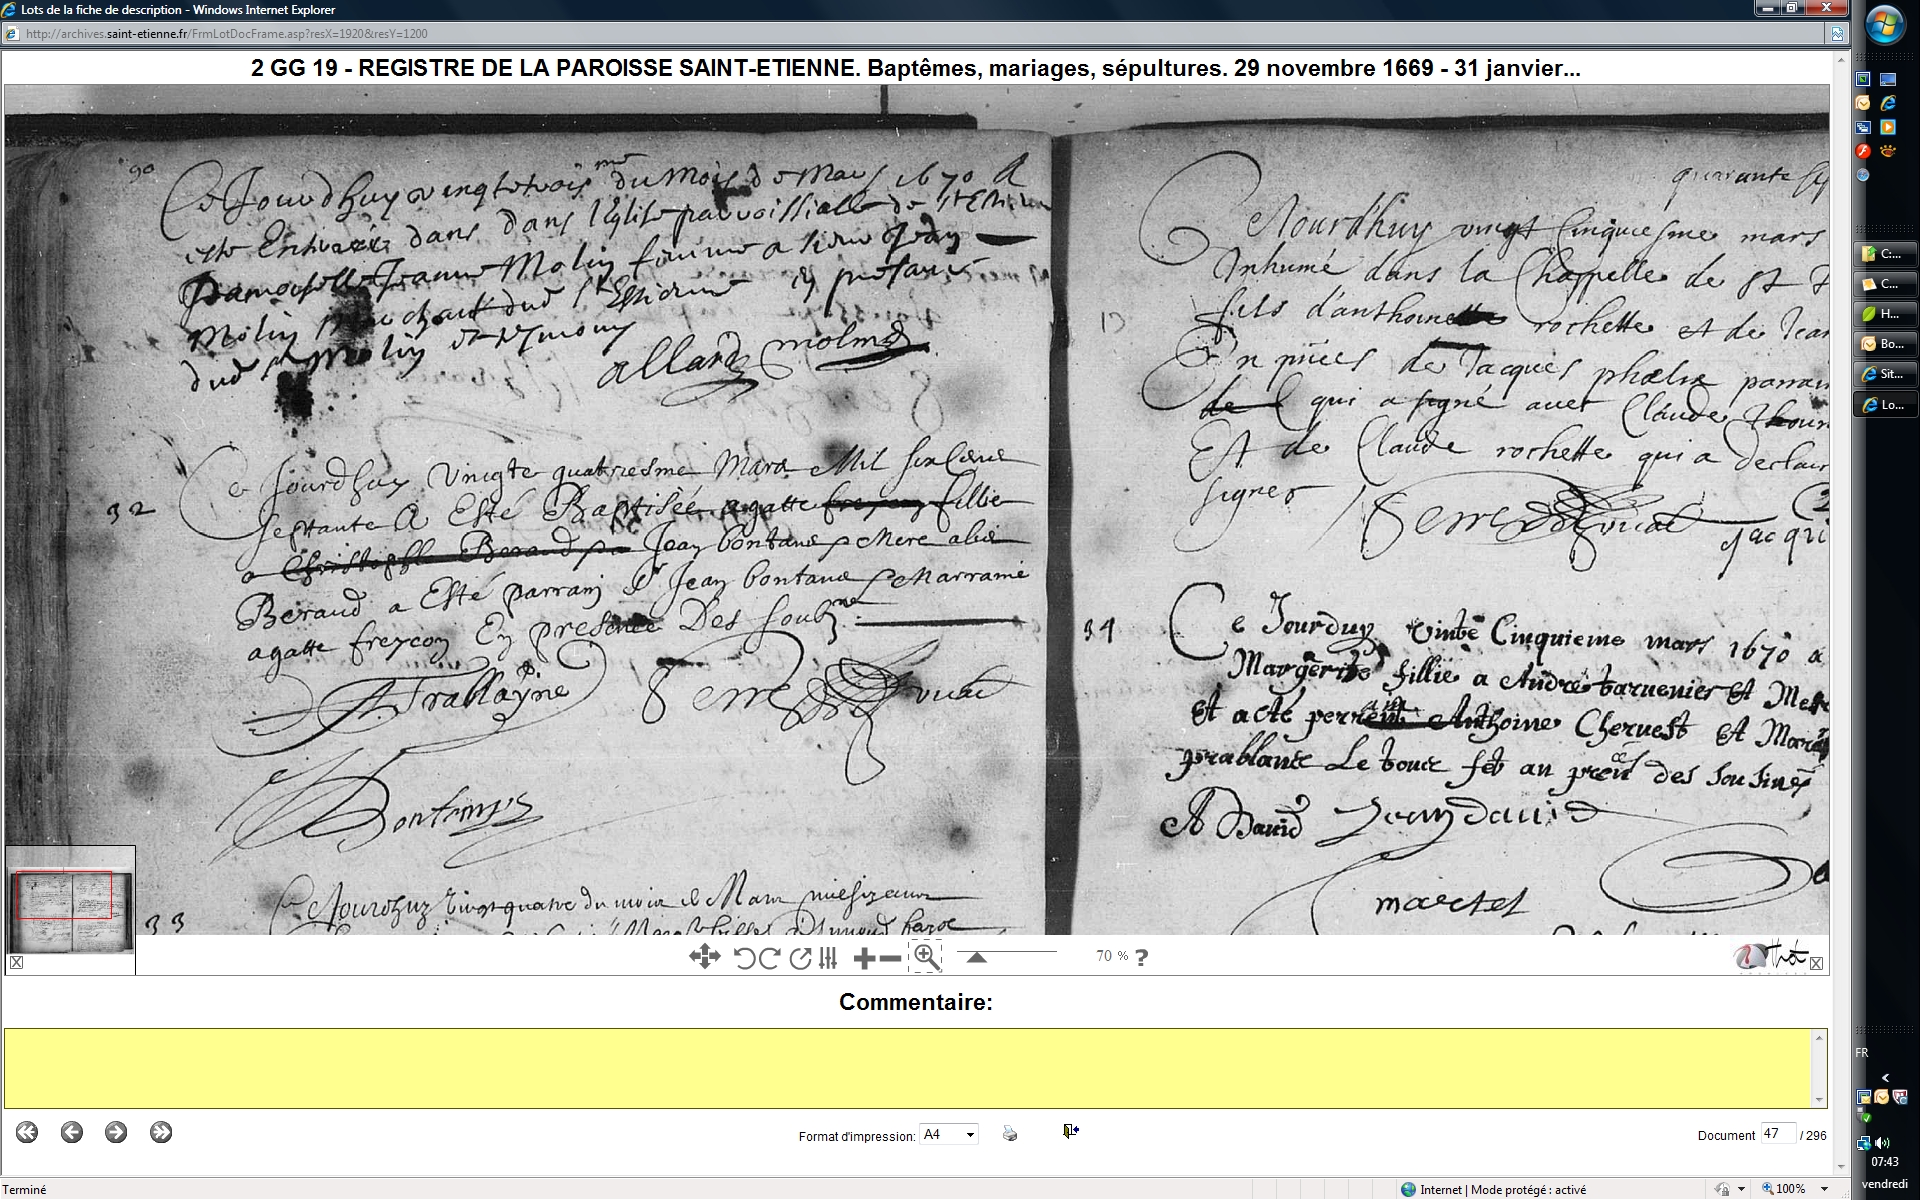 Lots de la fiche de description - Windows Internet Explorer
http://archives.saint-etienne.fr/FrmLotDocFrame.asp?resX=1920&resY=1200
2 GG 19 - REGISTRE DE LA PAROISSE SAINT-ETIENNE. Baptêmes, mariages, sépultures. 29 novembre 1669 - 31 janvier...
90
Ce Jourdhuy vingt troisme du mois de Mars 1670 A
este Enterrée dans dans l'Eglise parroissialle de St Etien
Damoiselle Jeanne Molin femme a sieur Jean
Molin marchant dud St Estienne En presance
dud sr Molin
allard molin
32
Ce Jourdhuy Vingte quatriesme Mars Mil six Cens
septante A Esté Baptisée agatte freycon fillie
a Christophle Beraud Jean bontans Mere alis
Beraud a Esté parrain sr Jean bontans Marraine
agatte freycon En presence Des soubnés
A Trablayne Serre vicaire
Bontemps
33
Ce Jourdhuy vingt quatre du mois de Mars mil six cens
quarante
Ce Jourd'huy vingt Cinquiesme mars
Inhumé dans la Chappelle de St
13
fils d'anthoine rochette et de Jean
En pnces de Jacques phelix parrain
qui a signé avec Claude
Et de Claude rochette qui a declaré
signer
Serre vicaire
Jacqu
34
Ce Jourduy vinte Cinquieme mars 1670 a
Margerite fillie a André tavernier Et Mer
Et acté perrein Anthoine Chervest Et Mar
prablanc Le tout fet an prence des sousinés
A David Jean David
martel
70 % ?
Commentaire:
Format d'impression: A4
Document 47 / 296
Terminé
Internet | Mode protégé : activé
100%
C:...
C...
H...
Bo...
Sit...
Lo...
FR
07:43
vendredi